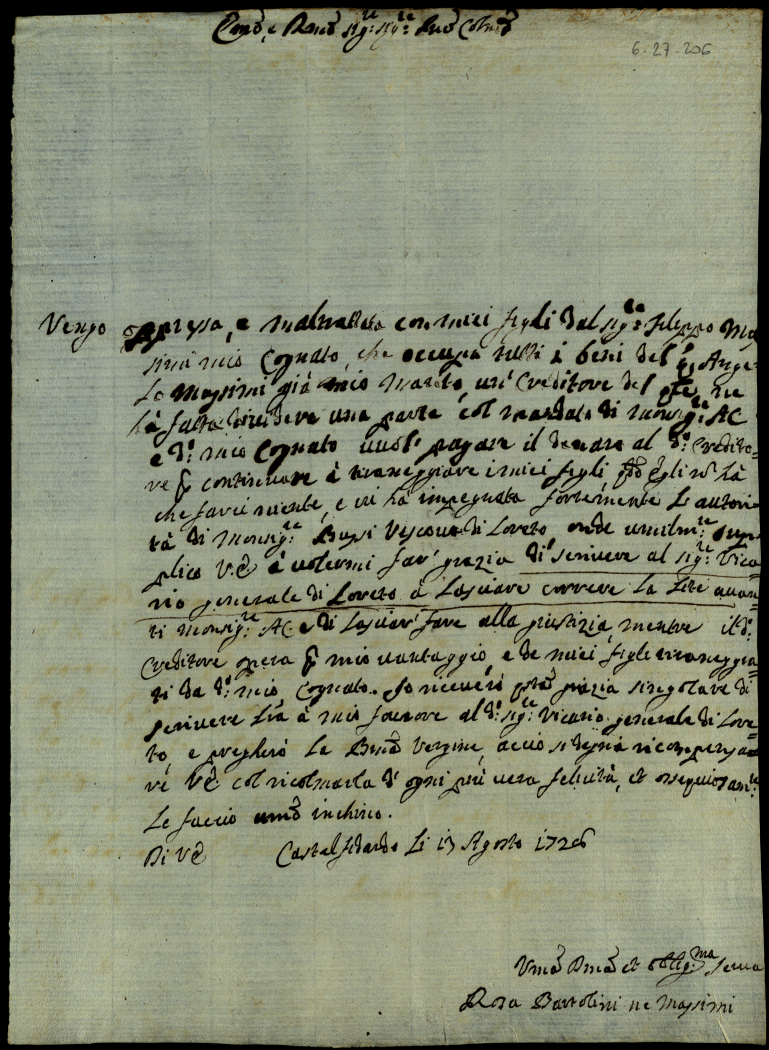 Em̃o, e Rmõ Sig:re Sig:re Pnẽ Colmõ
6-27-206
Vengo oppressa, e malnattata con miei figli dal sig:re Filippo Mas
simi mio Cognato, che occupa tutti i beni del q: Ange
lo Massimi già mio marito, un Creditore del pfto me
hà fatto dividere una parte col mandato di monsig:re AC
e d:o mio Cognato vuole pagare il denaro al d:o Credito=
re p continuare à tiraneggiare i miei figli pñdo egli nõ hà
che farci niente, e vi hà impegnata fortemente le autori
tà di Monsig:re Bussi Vescovo di Loreto, onde umilm:te sup
plico V.E. à volermi far grazia di scrivere al sig:re Vica
rio generale di Loreto à lasciare correre la lite avan=
ti monsig:re AC e di lasciar fare alla giustizia, mentre il d:o
Creditore opera p mio vantaggio, e de miei figli tiraneggia=
ti da d:o mio Cognato. Io riceverò pñtẽ grazia singolare di
scrivere à mio favore al d:o sig:re Vicario generale di Lore=
to, e pregherò la Bmã Vergine, acciò si degni ricompensa=
re V.E. col ricolmarla d'ogni più vera felicità, et ossequiosam:te
Le faccio umõ inchino.
Di V.E. Castelfidardo Li 13 Agosto 1726
Vmã Dmã et obblig:ma Serva
Rosa Bartolini ne Massimi